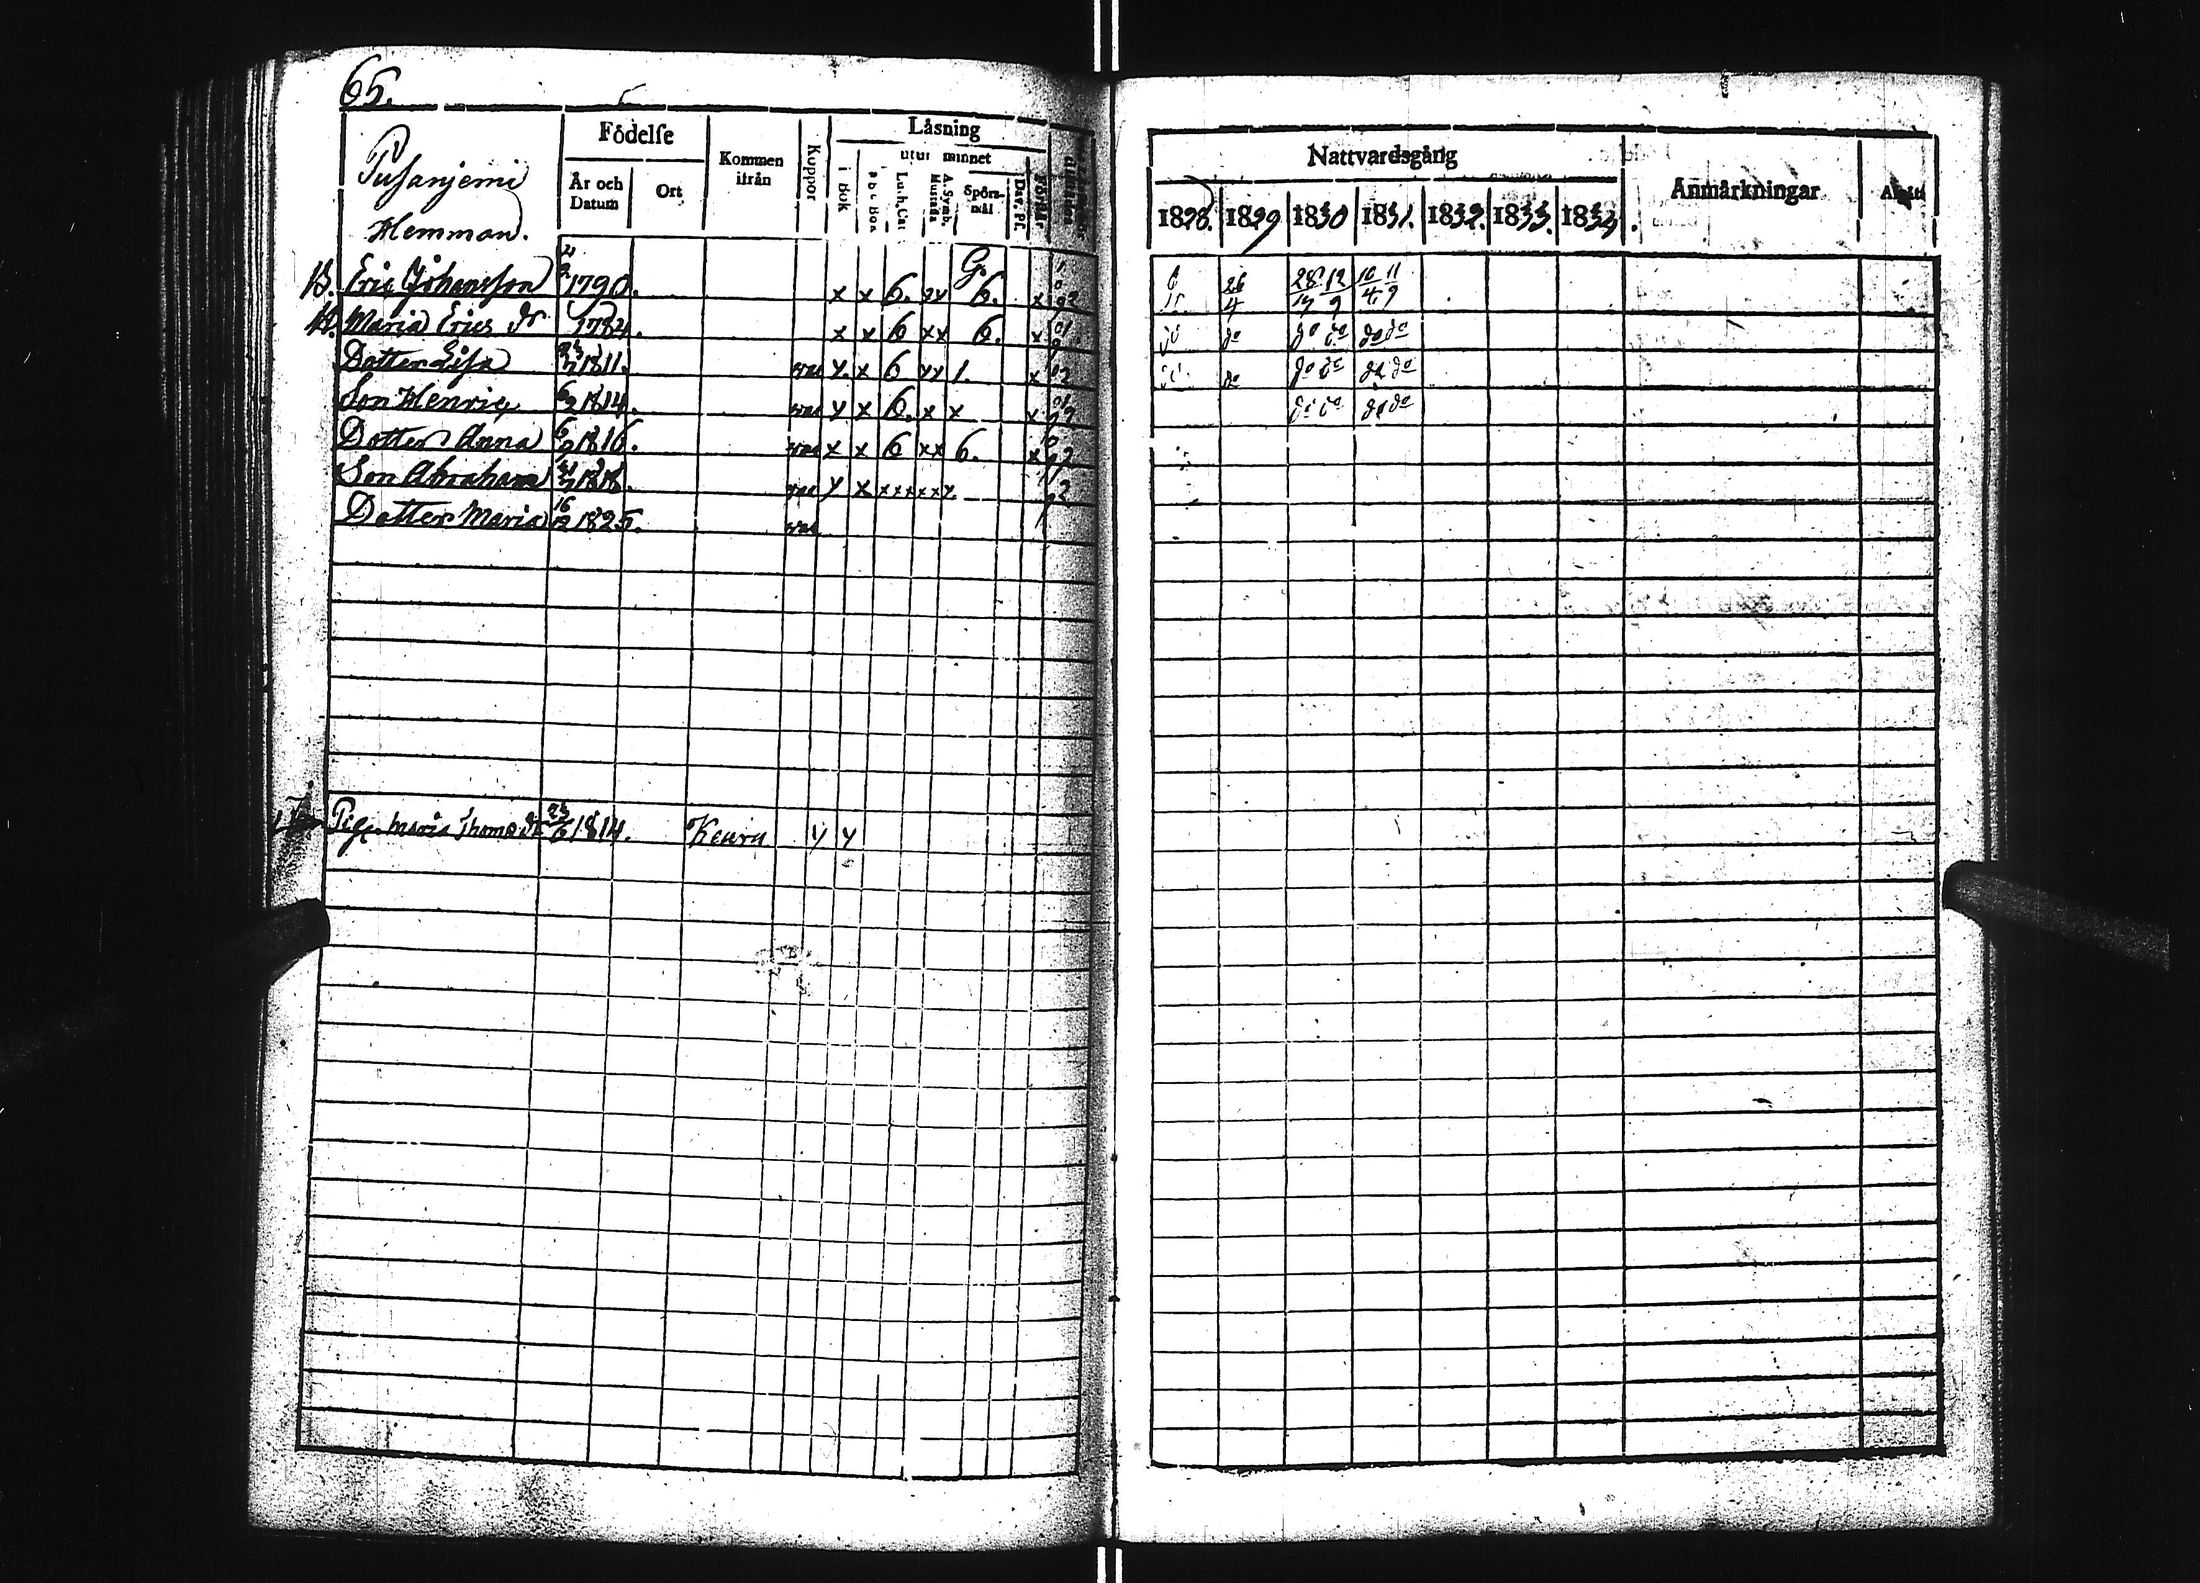 65.
Pusanjemi
Hemman.
Födelse
År och Datum
Ort
Kommen ifrån
Koppor
Låsning
i Bok
utur minnet
a b c Bok
Luth. Cat.
A. Symb.
Hustafla
Spörs-mål
Dav. Ps.
Förstår
B. Eric Johansson 1790. x x 6. xx G. 6. x
H. Maria Erics dr 1784. x x 6 xx 6. x
Dotter Lisa 1811. vac x x 6 xx 1. x
Son Henric 6/2 1814. vac x x 6. x x x
Dotter Anna 6/9 1816. vac x x 6 xx 6. x
Son Abraham 1818. vac x x xxxxxx
Dotter Maria 16/12 1825. vac
Pig. Maria Thomæ dr 23/6 1814. Keuru y y
Nattvardsgång
1828. 1829 1830 1831. 1832. 1833. 1834.
Anmärkningar
26/4 28/12 9 10/4 11/9
do do do do do
do do do do do
do do do do